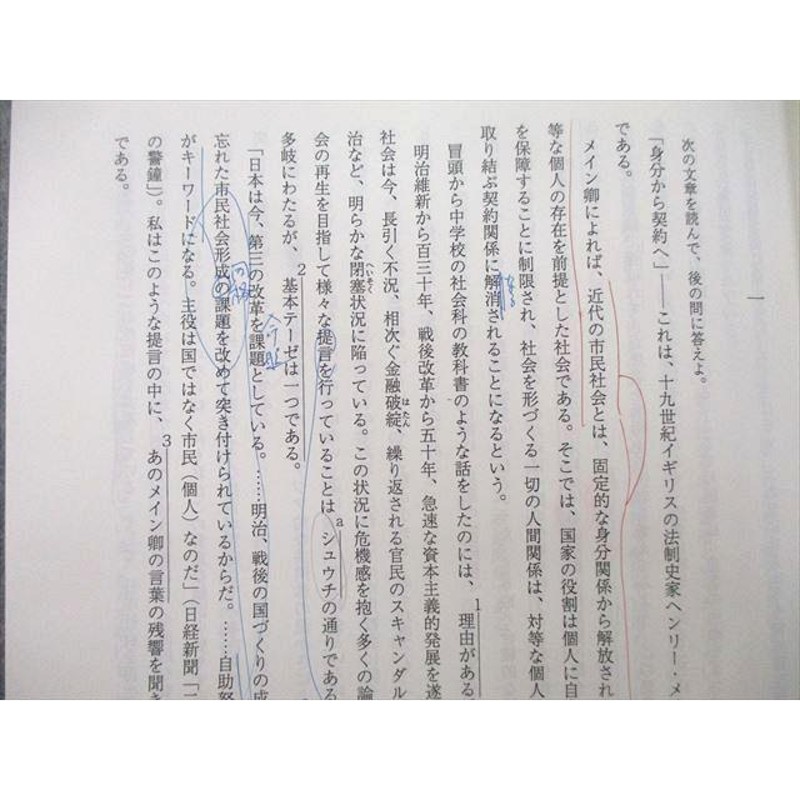 一
次の文章を読んで、後の問に答えよ。
「身分から契約へ」――これは、十九世紀イギリスの法制史家ヘンリー・メ
である。
メイン卿によれば、近代の市民社会とは、固定的な身分関係から解放され
等な個人の存在を前提とした社会である。そこでは、国家の役割は個人に自
を保障することに制限され、社会を形づくる一切の人間関係は、対等な個人
取り結ぶ契約関係に解消されることになるという。
冒頭から中学校の社会科の教科書のような話をしたのには、1理由がある
明治維新から百三十年、戦後改革から五十年、急速な資本主義的発展を遂
社会は今、長引く不況、相次ぐ金融破綻、繰り返される官民のスキャンダル
はたん
治など、明らかな閉塞状況に陥っている。この状況に危機感を抱く多くの論
へいそく
会の再生を目指して様々な提言を行っていることは aシュウチの通りである
多岐にわたるが、2基本テーゼは一つである。
「日本は今、第三の改革を課題としている。……明治、戦後の国づくりの成
忘れた市民社会形成の課題を改めて突き付けられているからだ。……自助努
がキーワードになる。主役は国ではなく市民（個人）なのだ」（日経新聞「二
の警鐘」）。私はこのような提言の中に、3あのメイン卿の言葉の残響を聞き
である。